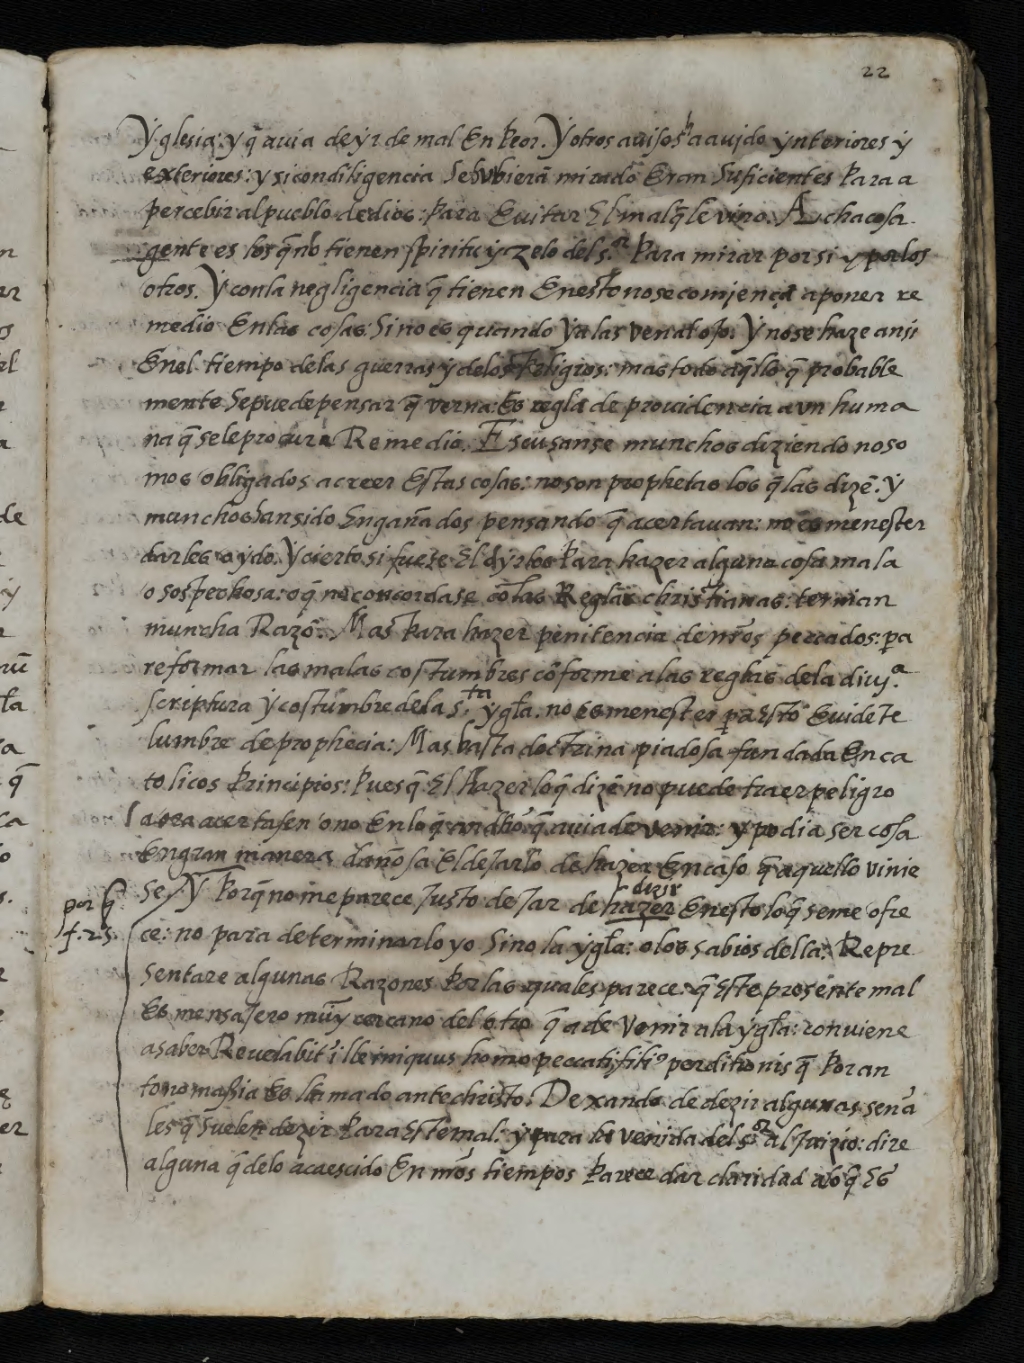 22
Yglesia: y q̄ auia de yr de mal En Peor. Y otros auisos h a auido ynteriores y
exteriores: y si con diligencia Se Vbierā mirado Eran Suficientes Para a
percebir al pueblo de dios: Para Euitar El mal q̄ le vino. A cha cosa
gente es los q̄ no tienen spiritu y zelo del s.or Para mirar por si y por los
otros. Y con la negligencia q̄ tienen En esto no se comiença a poner re
medio En las cosas Sino es quando ya las ven al ojo. Y no se haze ansi
En el tiempo de las guerras y de los Peligros: mas todo aq̄llo q̄ probable
mente Se puede pensar q̄ verna: Es regla de prouidencia aun huma
na q̄ se le procura Remedio. Escusanse munchos diziendo no so
mos obligados a creer Estas cosas: no son prophetas los q̄ las dizē. Y
munchos han sido Engañados pensando q̄ acertauan: no es menester
darles oydo. Y cierto si fuese El oyrlos Para hazer alguna cosa mala
o sospechosa: o q̄ no concordase cō las Reglas christianas: ternian
muncha Razō. Mas Para hazer penitencia de nros peccados: pa
reformar las malas costumbres cōforme a las reglas de la diui.a
scriptura y costumbre de la s.ta ygła. no es menester pa Esto Euidēte
lumbre de prophecia: Mas basta doctrina piadosa fundada En ca
tolicos Principios: Pues q̄ El Hazer lo q̄ dizē no puede traer peligro
aora acertasen o no En lo q̄ an dho q̄ auia de venir: y podia ser cosa
En gran manera dañosa El dejarlo de hazer En caso q̄ aquello vinie
se / Y Porq̄ no me parece Justo dejar de hazer En esto lo q̄ se me ofre
dizir
por q̄
f. 25
ce: no para determinarlo yo Sino la ygła: o los sabios della: Repre
sentare algunas Razones Por las quales parece: q̄ Este presente mal
Es mensajero muy cercano del otro q̄ a de Venir a la ygła: conuiene
a saber Reuelabit' ille iniquus homo peccati filiꝰ perditionis q̄ Por an
tonomasia es llamado antechristo. Dexando de dezir algunas seña
les q̄ Suelen dezir Para Este mal: y para la venida del s.or al Juizio: dire
alguna q̄ de lo acaescido En nros tiempos Parece dar claridad a lo q̄ Es